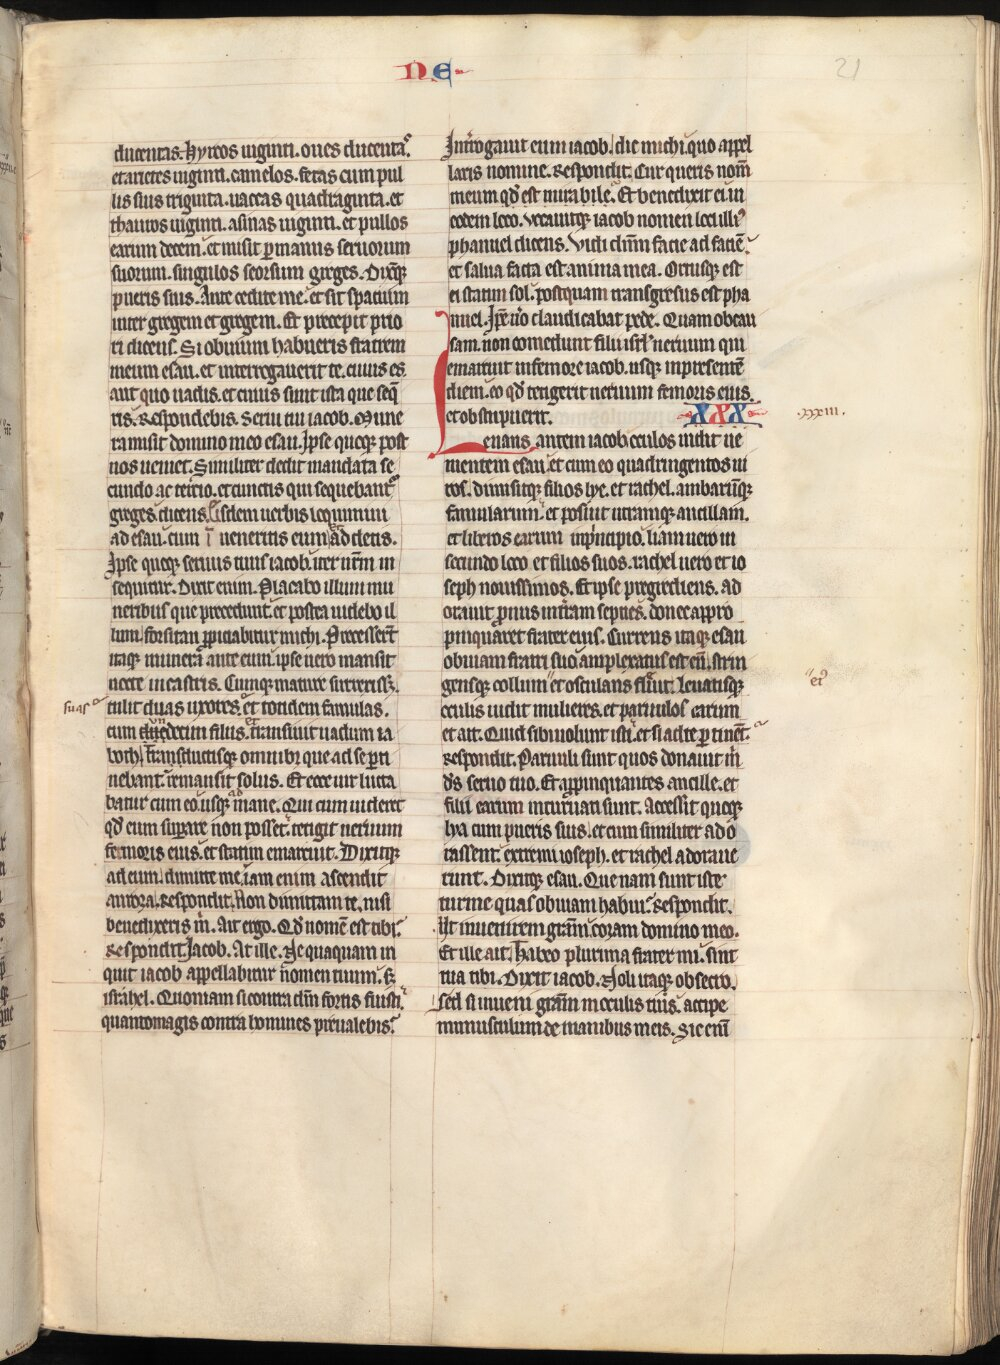 NE
21
ducentas. hyrcos uiginti. oues ducentaˢ.
et arietes uiginti. camelos. fetas cum pul
lis suis triginta. uaccas quadraginta. et
thauros uiginti. asinas uiginti. et pullos
earum decem. et misit p manus seruorum
suorum. singulos seorsum greges. Dixitq;
pueris suis. Ante cedite me. et sit spacium
inter gregem et gregem. Et precepit prio
ri dicens. Si obuium habueris fratrem
meum esau. et interrogauerit te. cuius es.
aut quo uadis. et cuius sunt ista que seq̄
ris. Respondebis. Serui tui iacob. Mune
ra misit domino meo esau. Ipse quoq; post
nos ueniet. Similiter dedit mandata se
cundo ac tercio. et cunctis qui sequebant᷑
greges. dicens. Eisdem uerbis loquimini
ad esau. cum ueneritis eum addetis.
Ipse quoq; seruus tuus iacob. iter nr̄m in
sequitur. Dixit enim. Placabo illum mu
neribus que precedunt. et postea uidebo il
lum. forsitan ppiciabitur michi. Precesser̄t
itaq; munera ante eum. ipse uero mansit
nocte in castris. Cumq; mature surrexiss;
suas
tulit duas uxores. et totidem famulas.
cum undecim filiis. et transiuit uadum ia
both. Transductisq; omnibus que ad se pti
nebant. remansit solus. Et ecce uir lucta
batur cum eo. usq; ad mane. Qui cum uideret
qd̄ eum supare non posset. tetigit neruum
femoris eius. et statim emarcuit. Dixitq;
ad eum. dimitte me. iam enim ascendit
aurora. Respondit. Non dimittam te. nisi
benedixeris m̄. Ait ergo. Qd̄ nomē est tibi.
Respondit. Iacob. At ille. Nequaquam in
quit iacob appellabitur nomen tuum. s;
israhel. Quoniam si contra dm̄ fortis fuisti.
quantomagis contra homines preualebis.
Introgauit eum iacob. dic michi. quo appel
laris nomine. Respondit. Cur queris nom̄
meum qd̄ est mirabile. Et benedixit ei in
eodem loco. Vocauitq; iacob nomen loci illi᷒
phanuel dicens. Vidi dm̄m facie ad faciē.
et salua facta est anima mea. Ortusq; est
ei statim sol. postquam transgresus est pha
nuel. Ipse uō claudicabat pede. Quam ob cau
sam. non comedunt filii isrl̄ neruum qui
emarcuit in femore iacob. usq; in presentē
diem. eo qd̄ tetigerit neruum femoris eius.
et obstipuerit.
XXX
xxxiii.
Leuans autem iacob oculos uidit ue
nientem esau. et cum eo quadringentos ui
ros. diuisitq; filios lye. et rachel. ambarūq;
famularum. et posuit utramq; ancillam.
et liberos earum in pncipio. liam uero in
secundo loco et filios suos. rachel uero et io
seph nouissimos. Et ipse progrediens. ad
orauit pnus in tr̄am septies. donec appro
pinquaret frater eius. Currens itaq; esau
obuiam fratri suo amplexatus est eū. strin
gensq; collum et osculans fleuit. Leuatisq;
et
oculis uidit mulieres. et paruulos earum
et ait. Quid sibi uolunt isti. et si ad te ptinēt.
Respondit. Paruuli sunt quos donauit m̄
ds̄ seruo tuo. Et appinquantes ancille. et
filii earum incuruati sunt. Accessit quoq;
lya cum pueris suis. et cum similiter ado
rassent. extremi ioseph. et rachel adoraue
runt. Dixitq; esau. Que nam sunt iste
turme quas obuiam habui. Respondit.
Ut inuenirem gr̄am coram domino meo.
Et ille ait. Habeo plurima frater mi. sint
tua tibi. Dixit iacob. Noli itaq; obsecro.
sed si inueni gr̄am in oculis tuis. accipe
munusculum de manibus meis. Sic enī